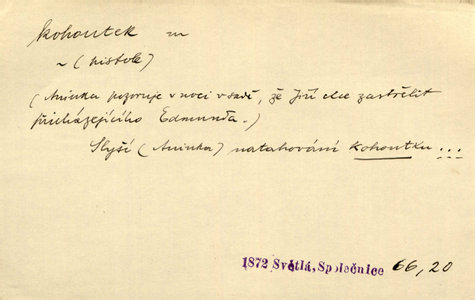 kohoutek m
~ (pistole)
(Aninka pozoruje v noci v sadě, že Jiří chce zastřelit
přicházejícího Edmunda.)
Slyší (Aninka) natahování kohoutku...
1872 Světlá, Společnice 66, 20